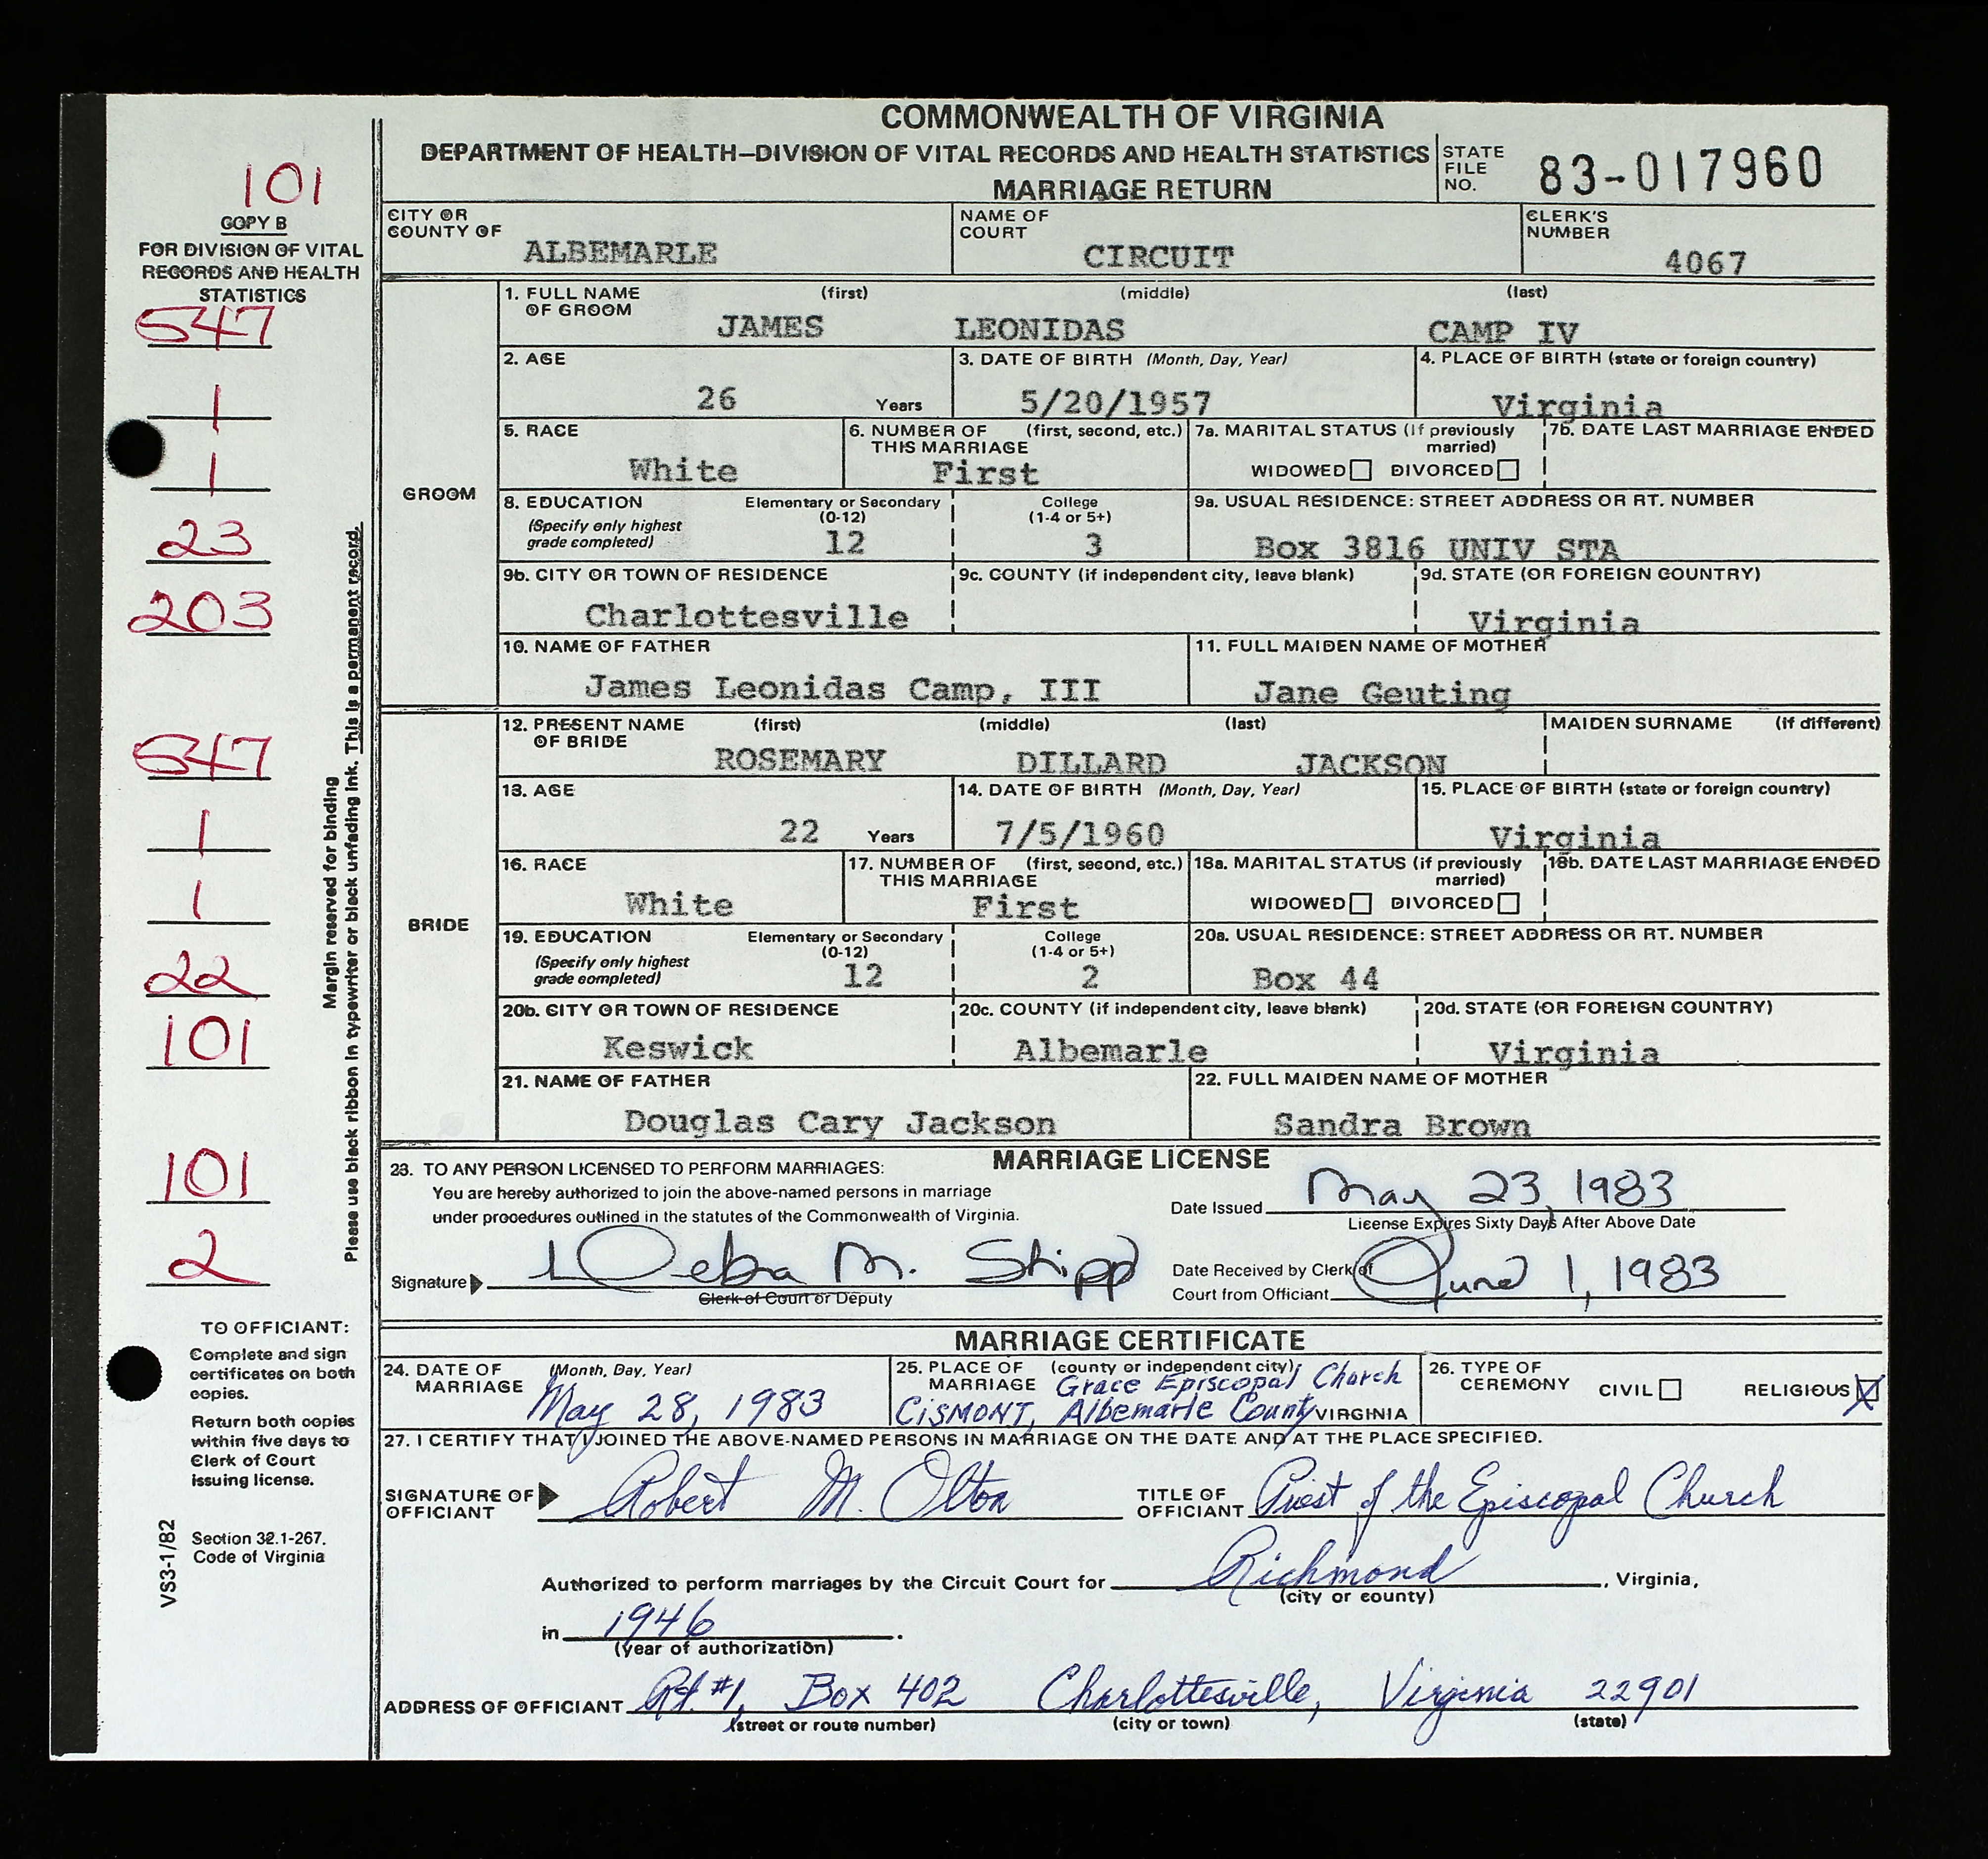 COMMONWEALTH OF VIRGINIA
DEPARTMENT OF HEALTH—DIVISION OF VITAL RECORDS AND HEALTH STATISTICS
MARRIAGE RETURN
STATE FILE NO. 83-017960
101
COPY B
FOR DIVISION OF VITAL
RECORDS AND HEALTH
STATISTICS
547
1
1
23
203
547
1
1
22
101
101
2
Margin reserved for binding
Please use black ribbon in typewriter or black unfading ink. This is a permanent record.
TO OFFICIANT:
Complete and sign
certificates on both
copies.
Return both copies
within five days to
Clerk of Court
issuing license.
Section 32.1-267.
Code of Virginia
VS3-1/82
CITY OR COUNTY OF ALBEMARLE
NAME OF COURT CIRCUIT
CLERK'S NUMBER 4067
GROOM
1. FULL NAME OF GROOM (first) (middle) (last)
JAMES LEONIDAS CAMP IV
2. AGE 26 Years
3. DATE OF BIRTH (Month, Day, Year) 5/20/1957
4. PLACE OF BIRTH (state or foreign country) Virginia
5. RACE White
6. NUMBER OF THIS MARRIAGE (first, second, etc.) First
7a. MARITAL STATUS (If previously married) WIDOWED DIVORCED
7b. DATE LAST MARRIAGE ENDED
8. EDUCATION (Specify only highest grade completed) Elementary or Secondary (0-12) 12
College (1-4 or 5+) 3
9a. USUAL RESIDENCE: STREET ADDRESS OR RT. NUMBER Box 3816 UNIV STA
9b. CITY OR TOWN OF RESIDENCE Charlottesville
9c. COUNTY (if independent city, leave blank)
9d. STATE (OR FOREIGN COUNTRY) Virginia
10. NAME OF FATHER James Leonidas Camp, III
11. FULL MAIDEN NAME OF MOTHER Jane Geuting
BRIDE
12. PRESENT NAME OF BRIDE (first) (middle) (last) MAIDEN SURNAME (if different)
ROSEMARY DILLARD JACKSON
13. AGE 22 Years
14. DATE OF BIRTH (Month, Day, Year) 7/5/1960
15. PLACE OF BIRTH (state or foreign country) Virginia
16. RACE White
17. NUMBER OF THIS MARRIAGE (first, second, etc.) First
18a. MARITAL STATUS (if previously married) WIDOWED DIVORCED
18b. DATE LAST MARRIAGE ENDED
19. EDUCATION (Specify only highest grade completed) Elementary or Secondary (0-12) 12
College (1-4 or 5+) 2
20a. USUAL RESIDENCE: STREET ADDRESS OR RT. NUMBER Box 44
20b. CITY OR TOWN OF RESIDENCE Keswick
20c. COUNTY (if independent city, leave blank) Albemarle
20d. STATE (OR FOREIGN COUNTRY) Virginia
21. NAME OF FATHER Douglas Cary Jackson
22. FULL MAIDEN NAME OF MOTHER Sandra Brown
MARRIAGE LICENSE
23. TO ANY PERSON LICENSED TO PERFORM MARRIAGES:
You are hereby authorized to join the above-named persons in marriage
under procedures outlined in the statutes of the Commonwealth of Virginia.
Date Issued May 23, 1983
License Expires Sixty Days After Above Date
Signature Debra M. Shipp
Clerk of Court or Deputy
Date Received by Clerk of
Court from Officiant June 1, 1983
MARRIAGE CERTIFICATE
24. DATE OF MARRIAGE (Month, Day, Year) May 28, 1983
25. PLACE OF MARRIAGE (county or independent city) Grace Episcopal Church
CISMONT, Albemarle County VIRGINIA
26. TYPE OF CEREMONY CIVIL RELIGIOUS X
27. I CERTIFY THAT I JOINED THE ABOVE-NAMED PERSONS IN MARRIAGE ON THE DATE AND AT THE PLACE SPECIFIED.
SIGNATURE OF OFFICIANT Robert M. Olton
TITLE OF OFFICIANT Priest of the Episcopal Church
Authorized to perform marriages by the Circuit Court for Richmond, Virginia,
(city or county)
in 1946.
(year of authorization)
ADDRESS OF OFFICIANT Rt. #1, Box 402 Charlottesville, Virginia 22901
(street or route number) (city or town) (state)